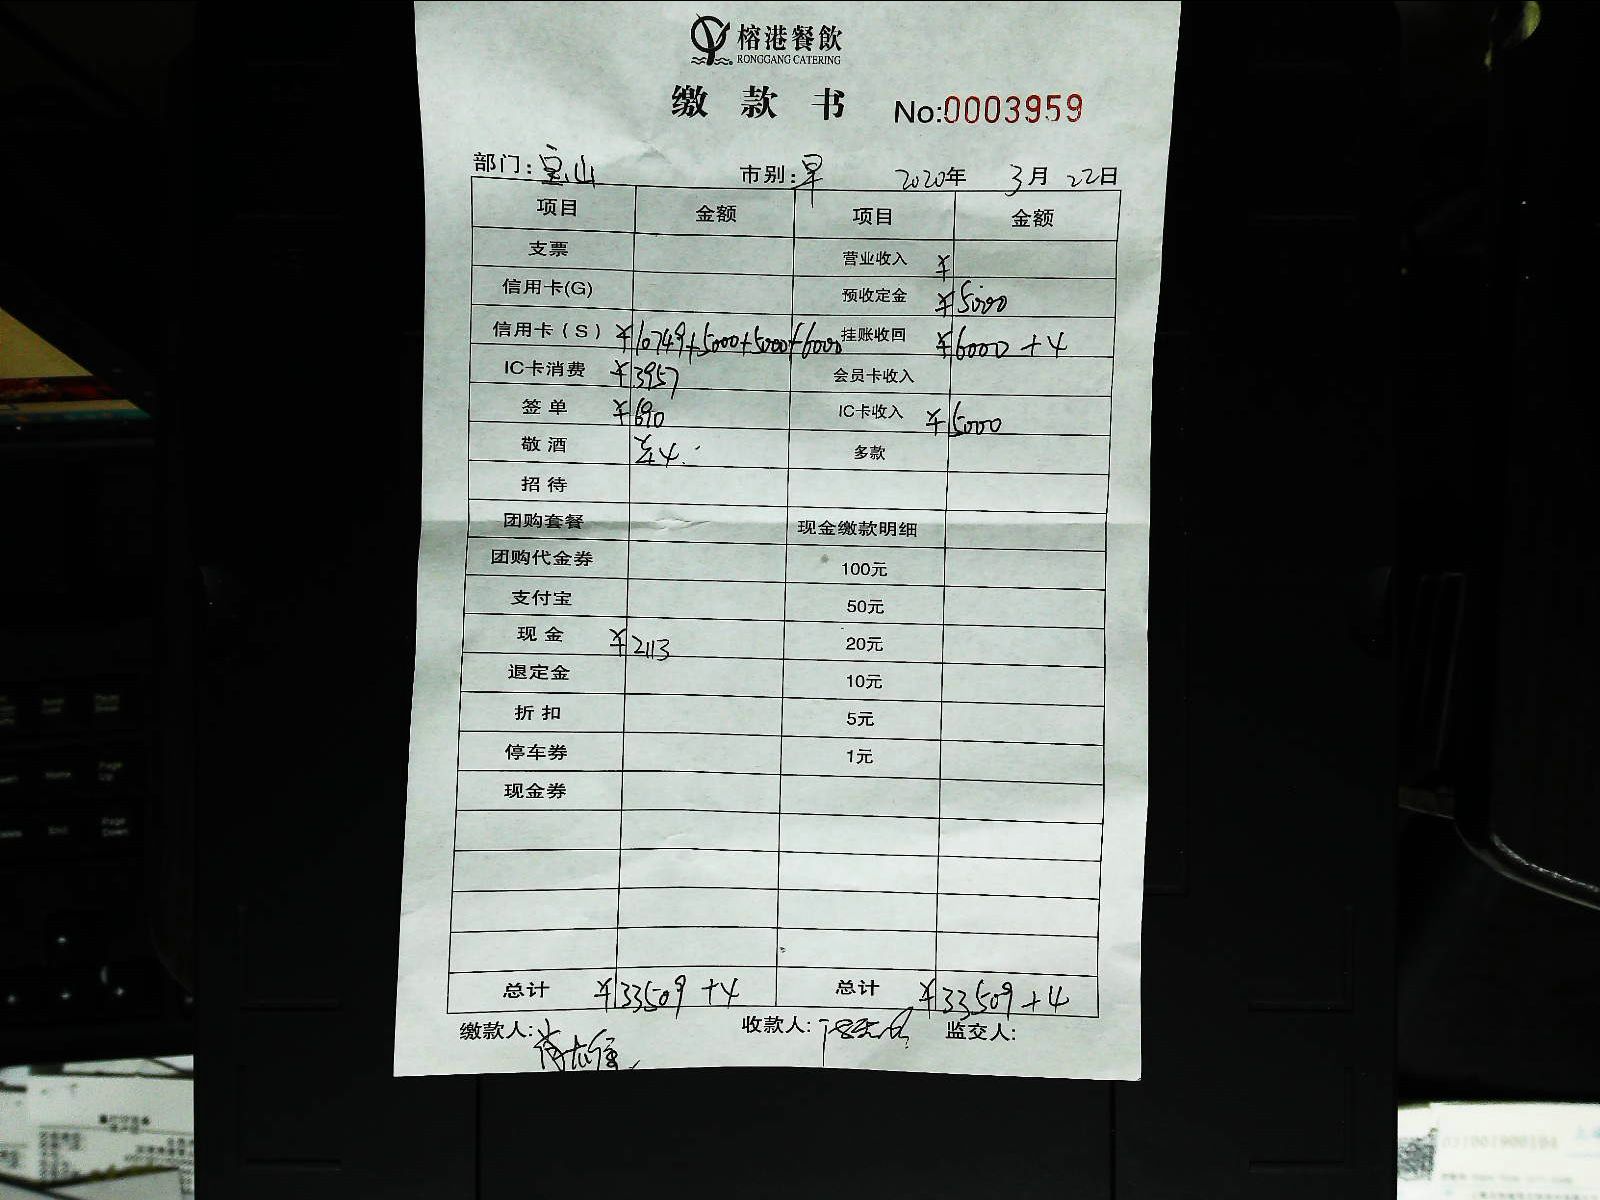 榕港餐飲
RONGGANG CATERING
缴 款 书 No:0003959
部门: 宝山 市别: 早 2020年 3月 22日
项目 金额 项目 金额
支票 营业收入 ¥
信用卡(G) 预收定金 ¥5000
信用卡(S) ¥10749+5000+5000+6000 挂账收回 ¥6000 +4
IC卡消费 ¥3957 会员卡收入
签 单 ¥690 IC卡收入 ¥5000
敬 酒 4. 多款
招 待
团购套餐 现金缴款明细
团购代金券 100元
支付宝 50元
现 金 ¥2113 20元
退定金 10元
折 扣 5元
停车券 1元
现金券
总计 ¥33509 +4 总计 ¥33509 +4
缴款人: 收款人: 监交人:
Home
Page Up
End
Page Down